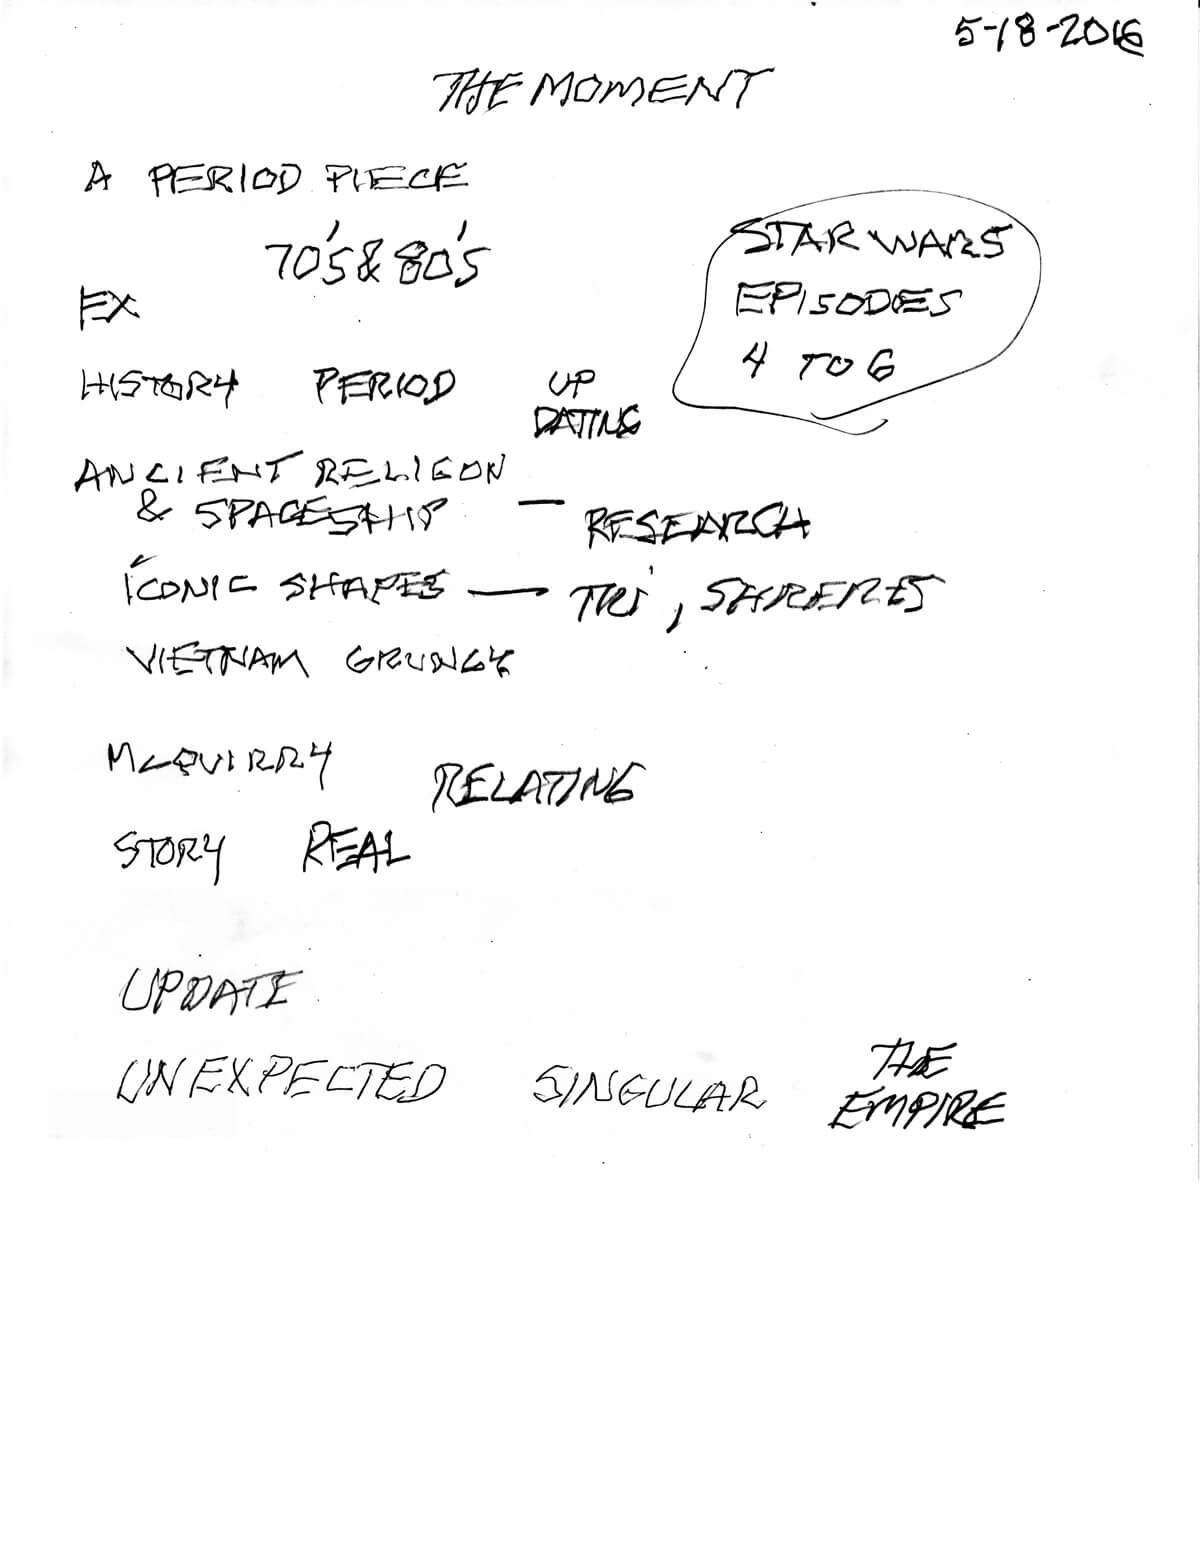 5-18-2016
THE MOMENT
A PERIOD PIECE
70'S & 80'S
STAR WARS
EPISODES
4 TO 6
EX
HISTORY PERIOD UP
DATING
ANCIENT RELIGON
& SPACESHIP — RESEARCH
ICONIC SHAPES — TRI, SHRERES
VIETNAM GRUNGY
MCQUIRRY
RELATING
STORY REAL
UPDATE
UNEXPECTED SINGULAR THE
EMPIRE